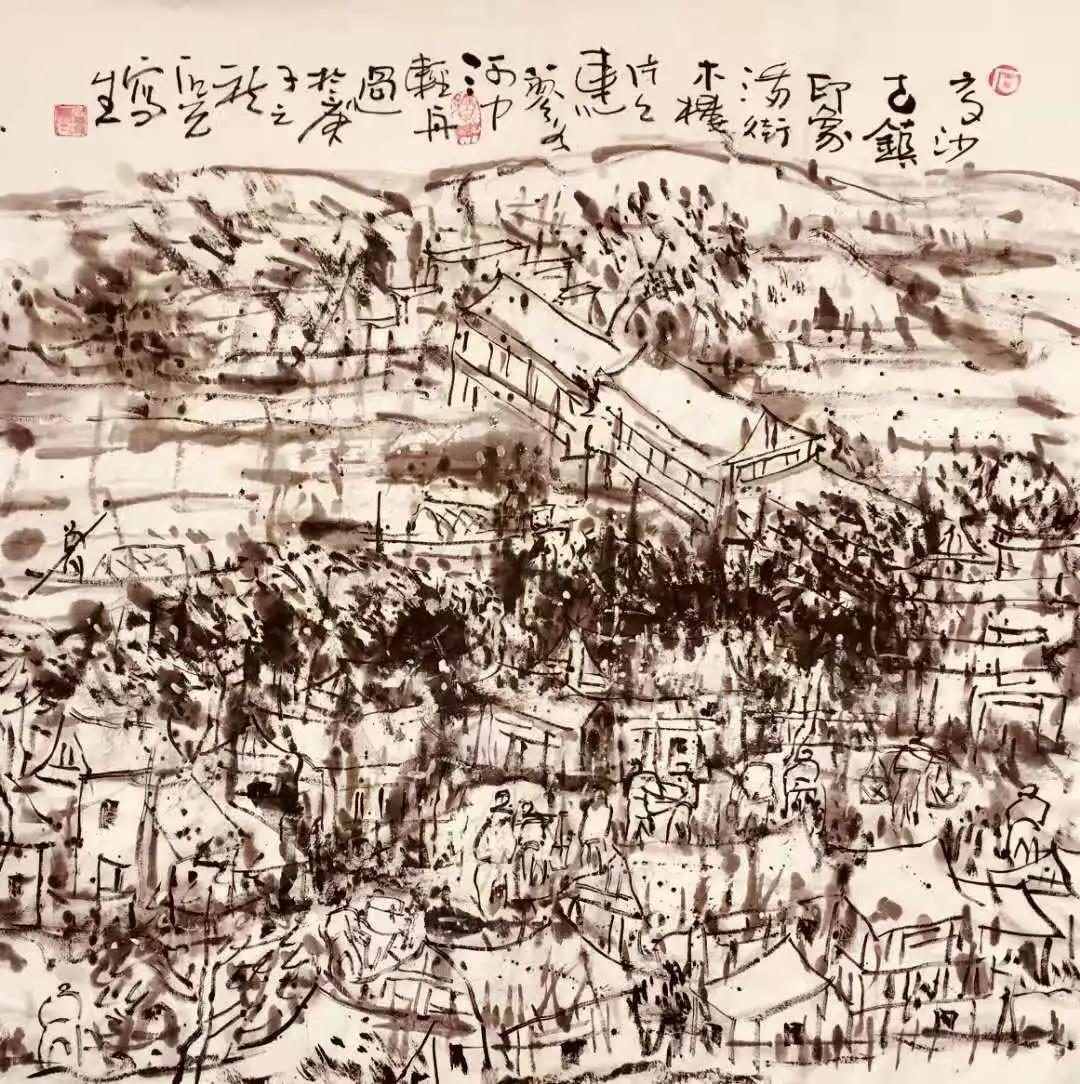 高沙
古鎮
印象
街
木樓
片片
連
蓼水
河中
輕舟
過
於庚
子之
秋
寫
生